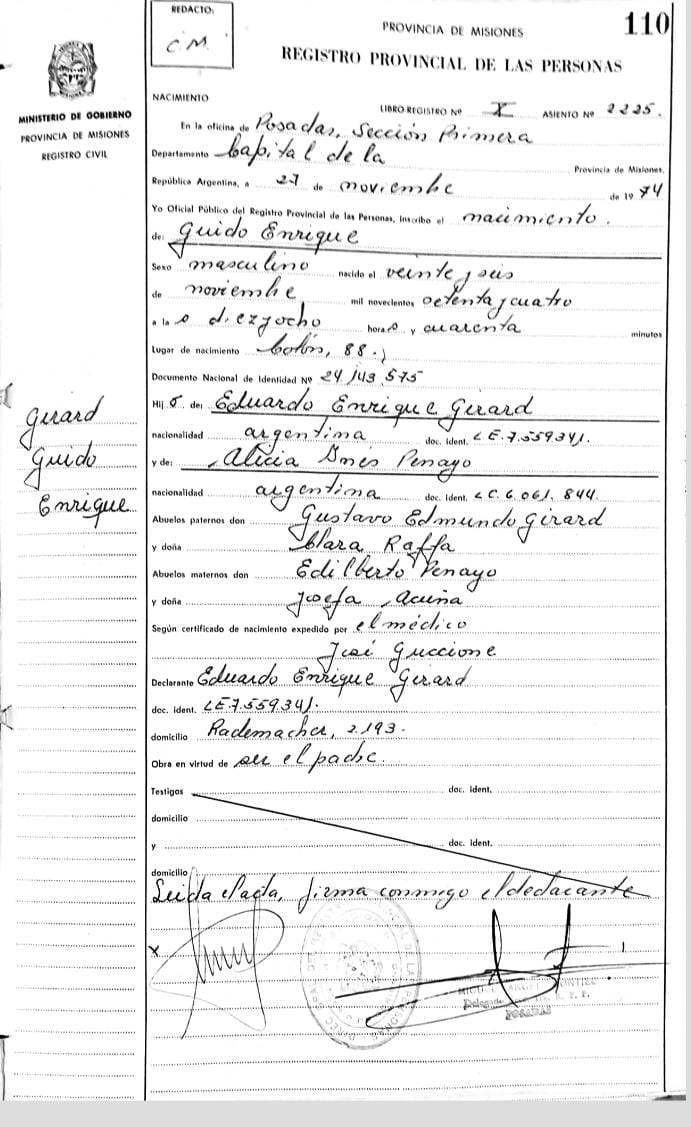 REDACTO:
C.M.
PROVINCIA DE MISIONES
110
REGISTRO PROVINCIAL DE LAS PERSONAS
MINISTERIO DE GOBIERNO
PROVINCIA DE MISIONES
REGISTRO CIVIL
NACIMIENTO
LIBRO REGISTRO Nº X ASIENTO Nº 2225.
En la oficina de Posadas, Sección Primera
Departamento Capital de la Provincia de Misiones,
República Argentina, a 27 de noviembre de 19 74
Yo Oficial Público del Registro Provincial de las Personas, inscribo el nacimiento.
de: Guido Enrique
Sexo masculino nacido el veinte y seis
de noviembre mil novecientos setenta y cuatro
a la s diezyocho hora s y cuarenta minutos
Lugar de nacimiento Colón, 88.
Documento Nacional de Identidad Nº 24 143 575
Hij o de: Eduardo Enrique Girard
nacionalidad argentina doc. ident. LE.7.559.341.
y de: Alicia Inés Penayo
nacionalidad argentina doc. ident. LC.6.061.844.
Abuelos paternos don Gustavo Edmundo Girard
y doña Clara Raffa
Abuelos maternos don Edilberto Penayo
y doña Josefa Acuña
Según certificado de nacimiento expedido por el médico
José Guccione
Declarante Eduardo Enrique Girard
doc. ident. LE.7.559.341.
domicilio Rademacher, 2.193.
Obra en virtud de ser el padre.
Testigos doc. ident.
domicilio
y doc. ident.
domicilio
Leida el acta, firma conmigo el declarante
X
Delegado
POSADAS
Girard
Guido
Enrique